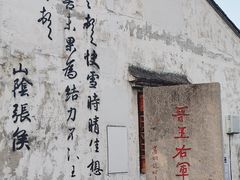 晉王右軍
頓首快雪時晴佳想
善未果為結力不次王
頓首
山陰張侯